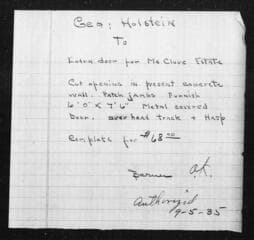 Geo; Holstein
To
Extra door for Mc Clure Estate
Cut opening in present concrete
wall. Patch jambs Furnish
6'0" x 7'6" Metal covered
Door, overhead track + Hasp
Complete for $68 00
O.K.
Authorized
9-5-35